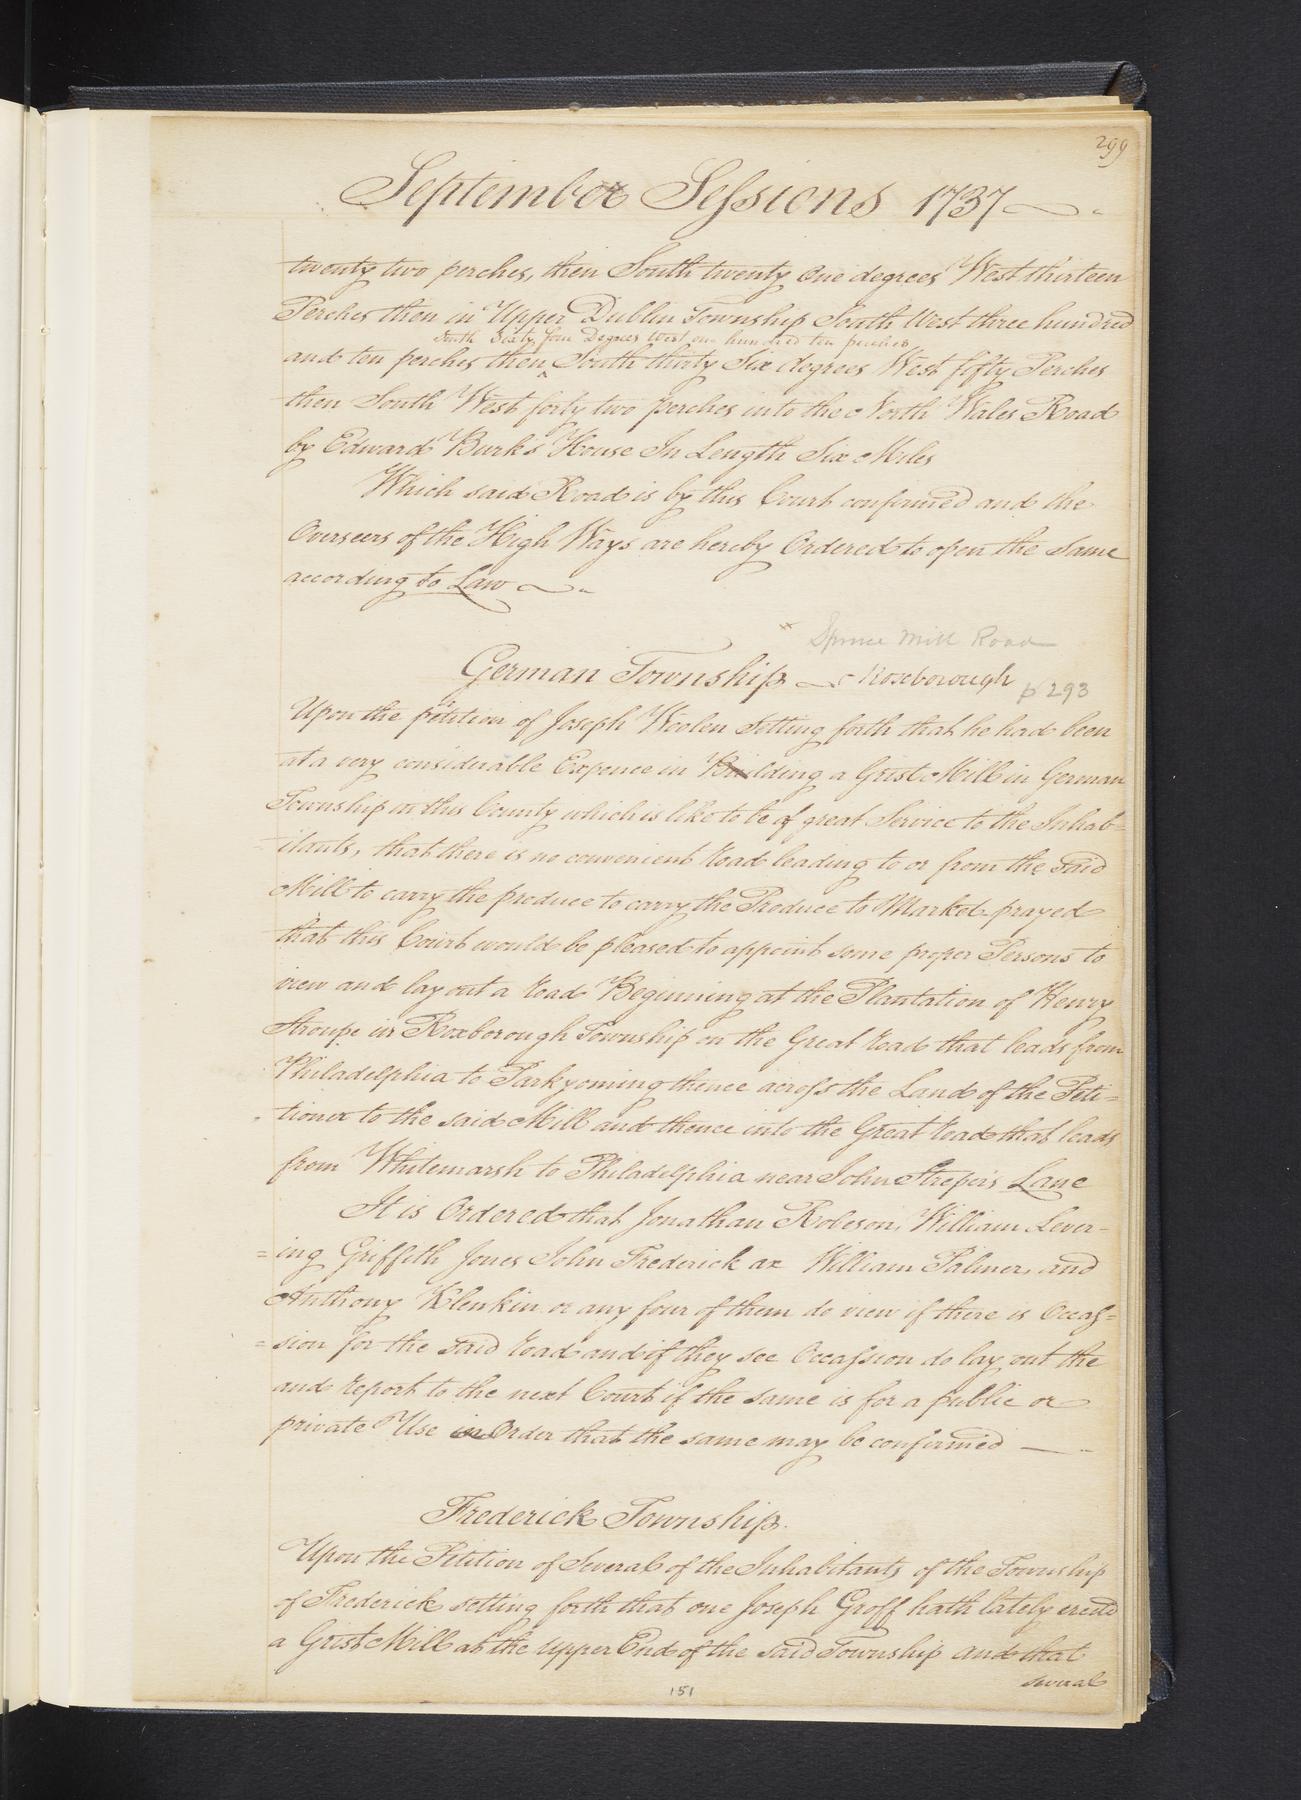 299
September Sessions 1737
twenty two perches, then South twenty one degrees West thirteen
Perches then in Upper Dublin Township South West three hundred
South Sixty four Degrees West one hundred ten perches
and ten perches then ^ South thirty Six degrees West fifty Perches
then South West forty two perches into the North Wales Road
by Edward Burk's House In Length Six Miles
Which said Road is by this Court confirmed and the
Overseers of the High Ways are hereby Ordered to open the Same
according to Law
Spruce Mill Road
German Township Roxborough p 293
Upon the petition of Joseph Woolen Setting forth that he had been
at a very considerable Expence in Building a Grist Mill in German
Township in this County which is like to be of great Service to the Inhab=
itants, that there is no convenient Road leading to or from the said
Mill to carry the produce to carry the Produce to Market prayed
that this Court would be pleased to appoint some proper Persons to
view and lay out a Road Beginning at the Plantation of Henry
Stroupe in Roxborough Township on the Great Road that leads from
Philadelphia to Parkyoming thence across the Land of the Peti=
tioner to the said Mill and thence into the Great Road that leads
from Whitemarsh to Philadelphia near John Streper's Lane
It is Ordered that Jonathan Robeson, William Lever-
=ing Griffith Jones John Frederick ax William Palmer, and
Anthony Klenkin or any four of them do view if there is Occas=
=sion for the said Road and if they see Occassion do lay out the
and report to the next Court if the same is for a public or
private Use in Order that the same may be confirmed
Frederick Township.
Upon the Petition of Several of the Inhabitants of the Township
of Frederick setting forth that one Joseph Groff hath lately erected
a Grist Mill at the upper End of the said Township and that
several
151